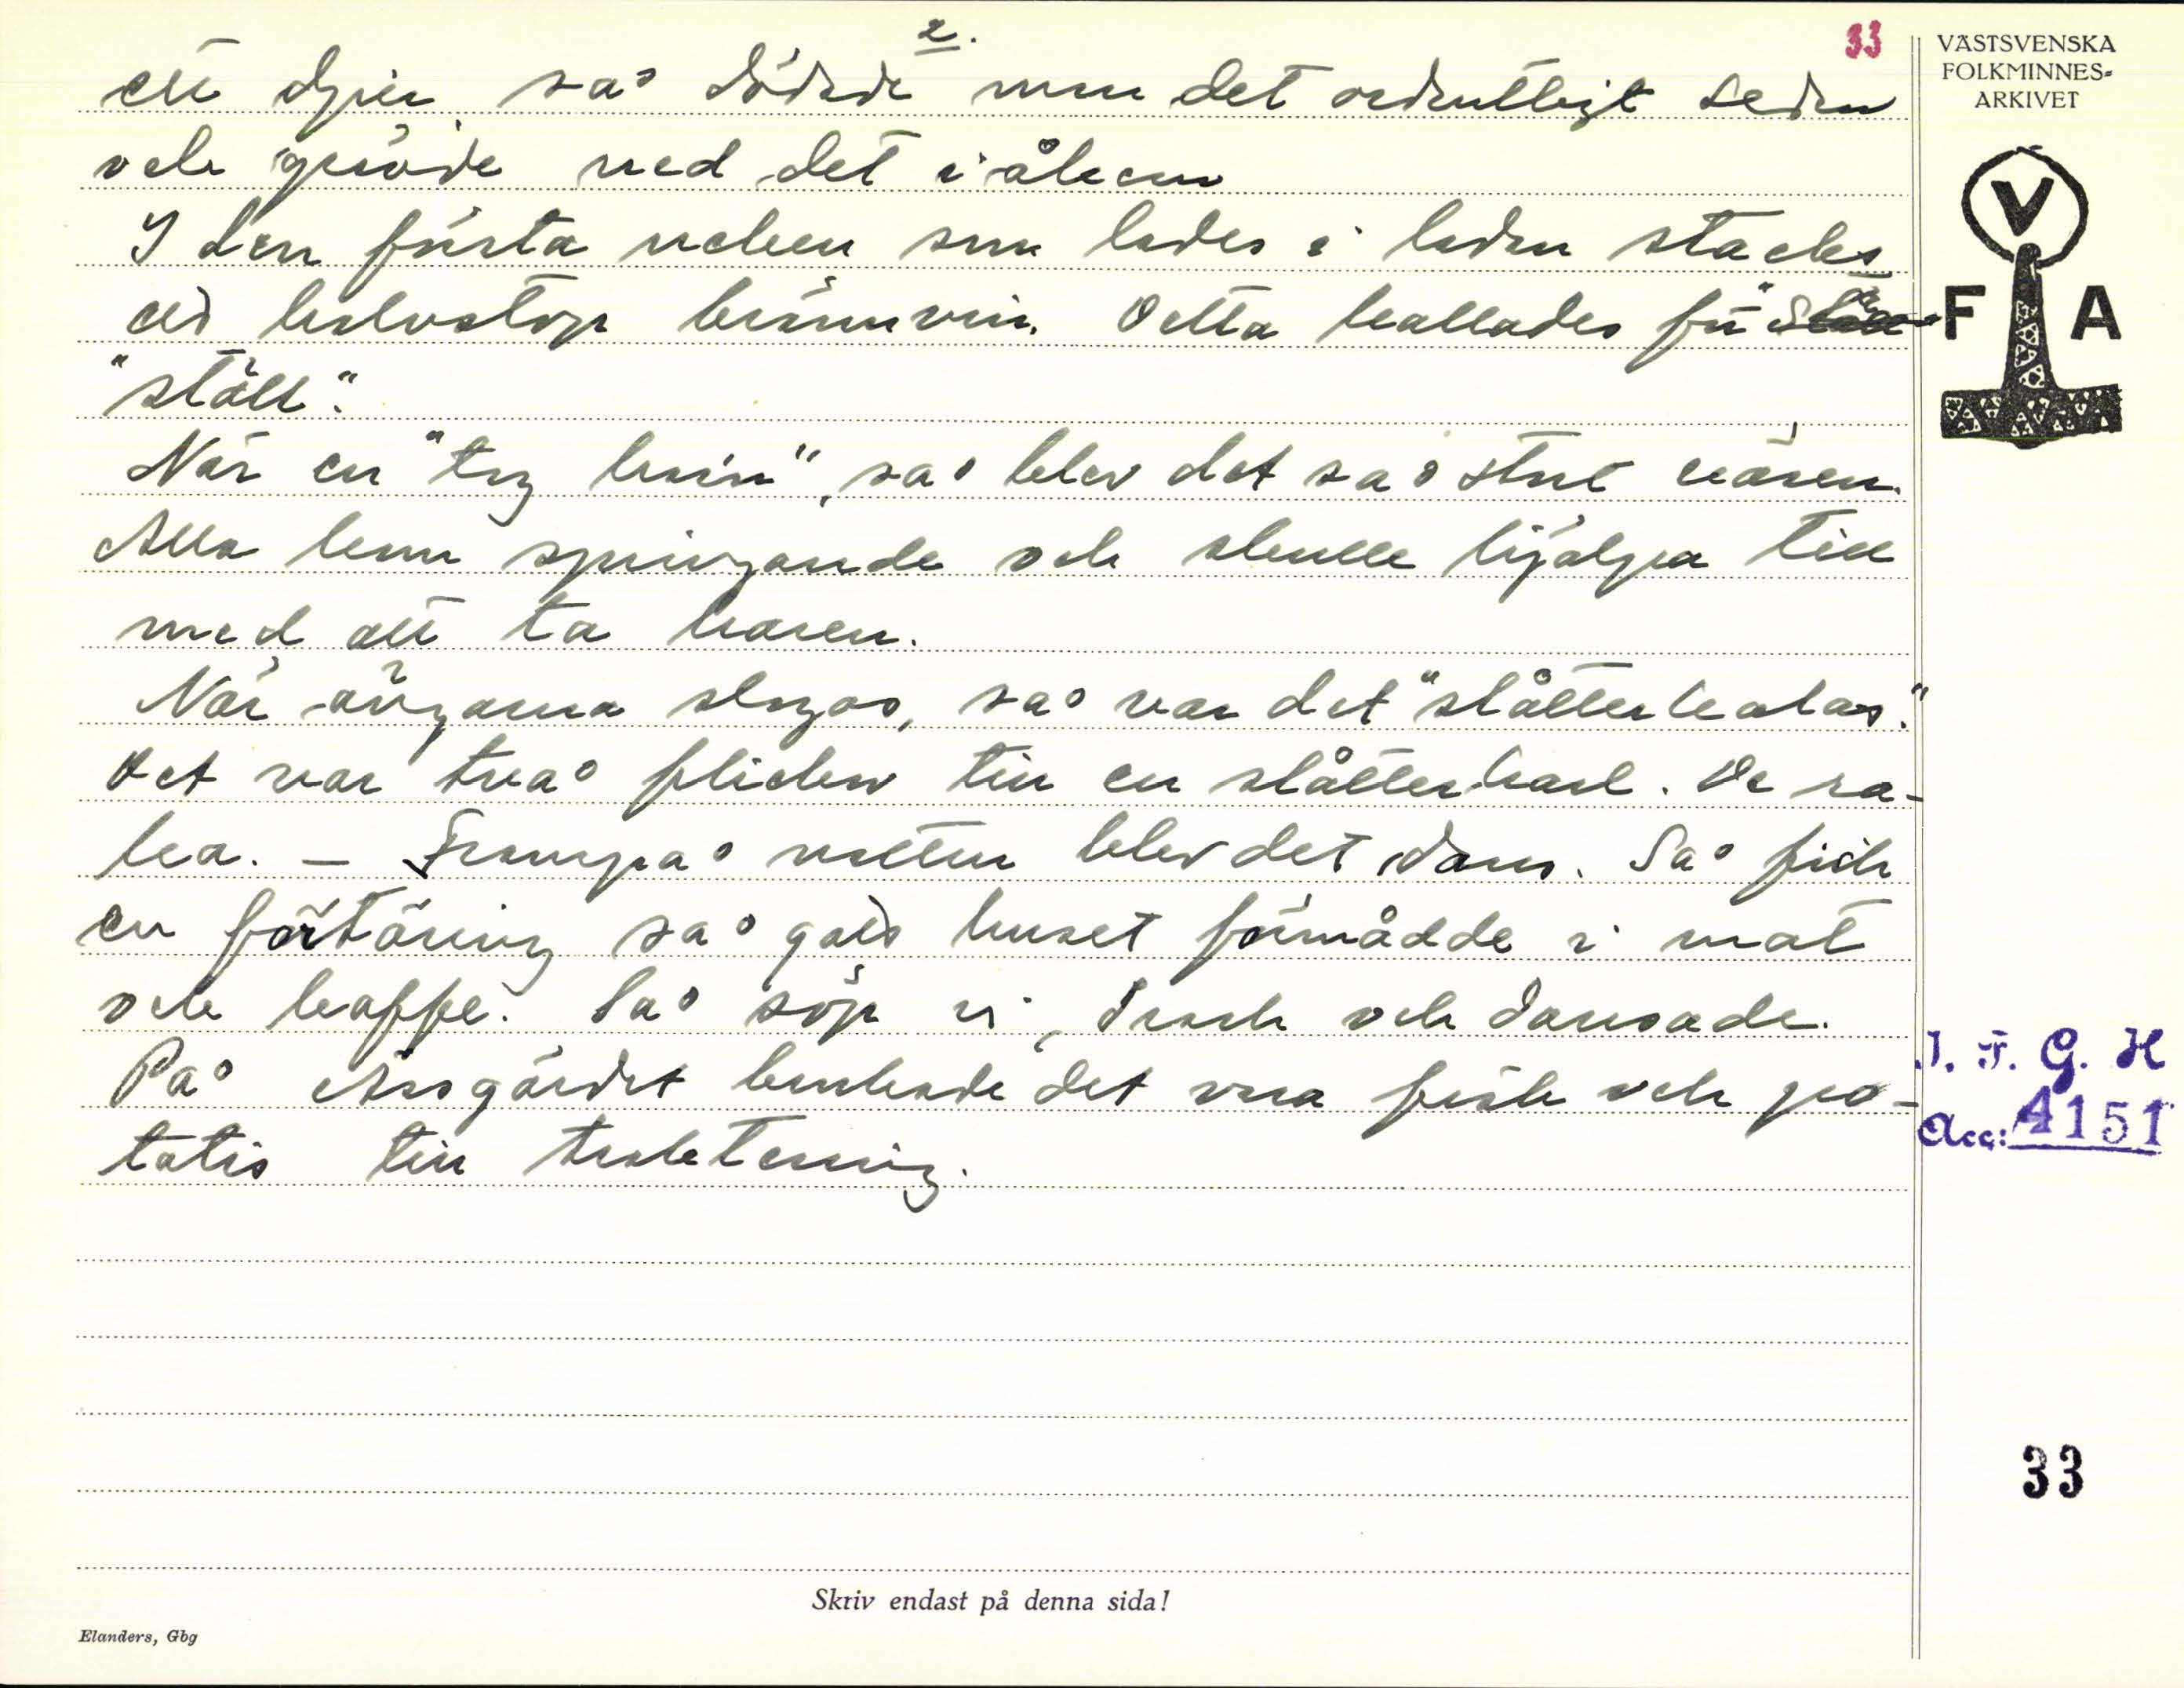 2.
33
ett djur så dödade man det ordentligt sedan
och grävde ned det i åkern
I den första veken som lades i ladan stacks
ett halvstop brännvin. Detta kallades för
"ställ".
När en "tog harn", så blev det så stort väsen.
Alla kom springande och skulle hjälpa till
med att ta haren.
När ängarna slogos, så var det "slåtterkalas."
Det var två flickor till en slåtterkarl. De ra-
ka. – Frampå natten blev det dans. Så fick
en förtäring så gott huset förmådde i mat
och kaffe. Så söp vi, drack och dansade.
På Åsgärdet brukade det vara fisk och po-
tatis till traktering.
VÄSTSVENSKA
FOLKMINNES-
ARKIVET
V
F A
I. F. G. H
Acc: 4151
33
Skriv endast på denna sida!
Elanders, Gbg